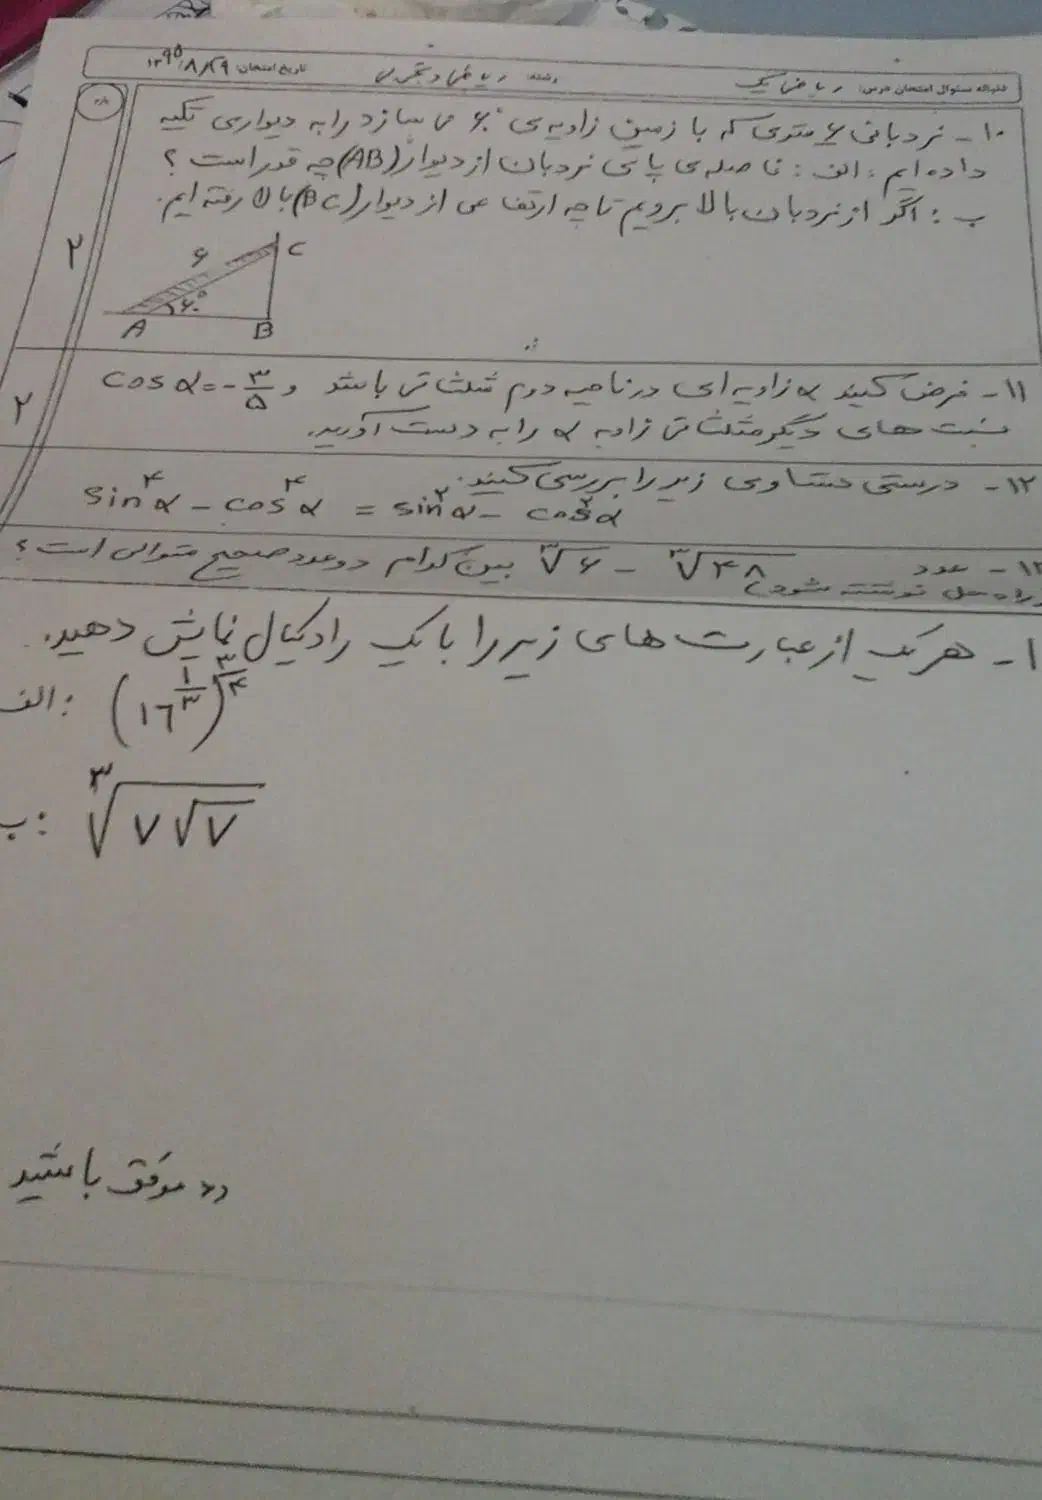 ریاضی یک رشته: ریاضی و تجربی تاریخ امتحان: ۱۳۹۵/۸/۲۹
۱۰- نردبانی ۶ متری که با زمین زاویه‌ی ۶۰° می سازد را به دیواری تکیه
داده ایم، الف: فاصله‌ی پای نردبان از دیوار (AB) چه قدر است؟
ب: اگر از نردبان بالا برویم تا چه ارتفاعی از دیوار (BC) بالا رفته ایم.
۲
۶
C
۶۰°
A B
۱۱- فرض کنید α زاویه ای در ناحیه دوم مثلثاتی باشد و cos α = -۳/۵
نسبت های دیگر مثلثاتی زاویه α را به دست آورید.
۲
۱۲- درستی تساوی زیر را بررسی کنید.
sin⁴α - cos⁴α = sin²α - cos²α
۱۳- عدد ∛۶ - ∛۴۸ بین کدام دو عدد صحیح متوالی است؟
(راه حل نوشته شود)
۱- هر یک از عبارت های زیر را با یک رادیکال نمایش دهید.
الف: (۱۶^۱/۳)^۳/۴
ب: ∛(۷√۷)
موفق باشید